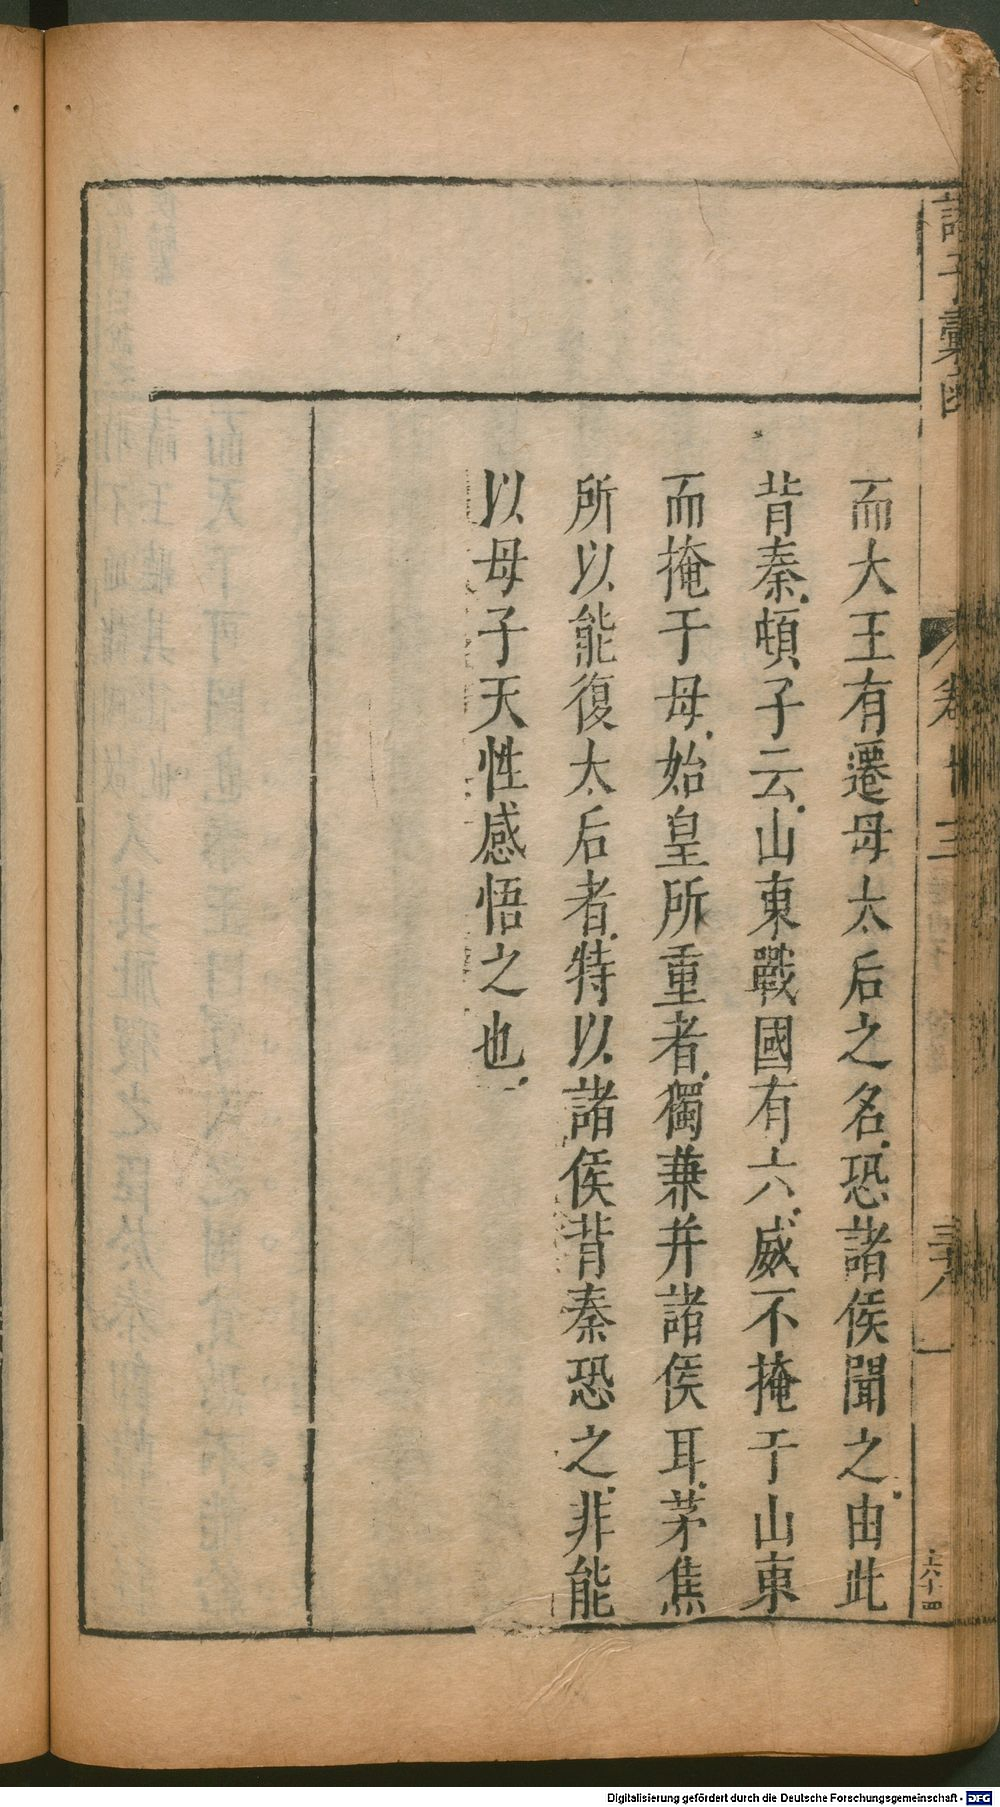 諸子彙函
卷十三
三十八
上六十四
而大王有遷母太后之名恐諸侯聞之由此
背秦頓子云山東戰國有六威不掩于山東
而掩于母始皇所重者獨兼并諸侯耳茅焦
所以能復太后者特以諸侯背秦恐之非能
以母子天性感悟之也
Digitalisierung gefördert durch die Deutsche Forschungsgemeinschaft - DFG